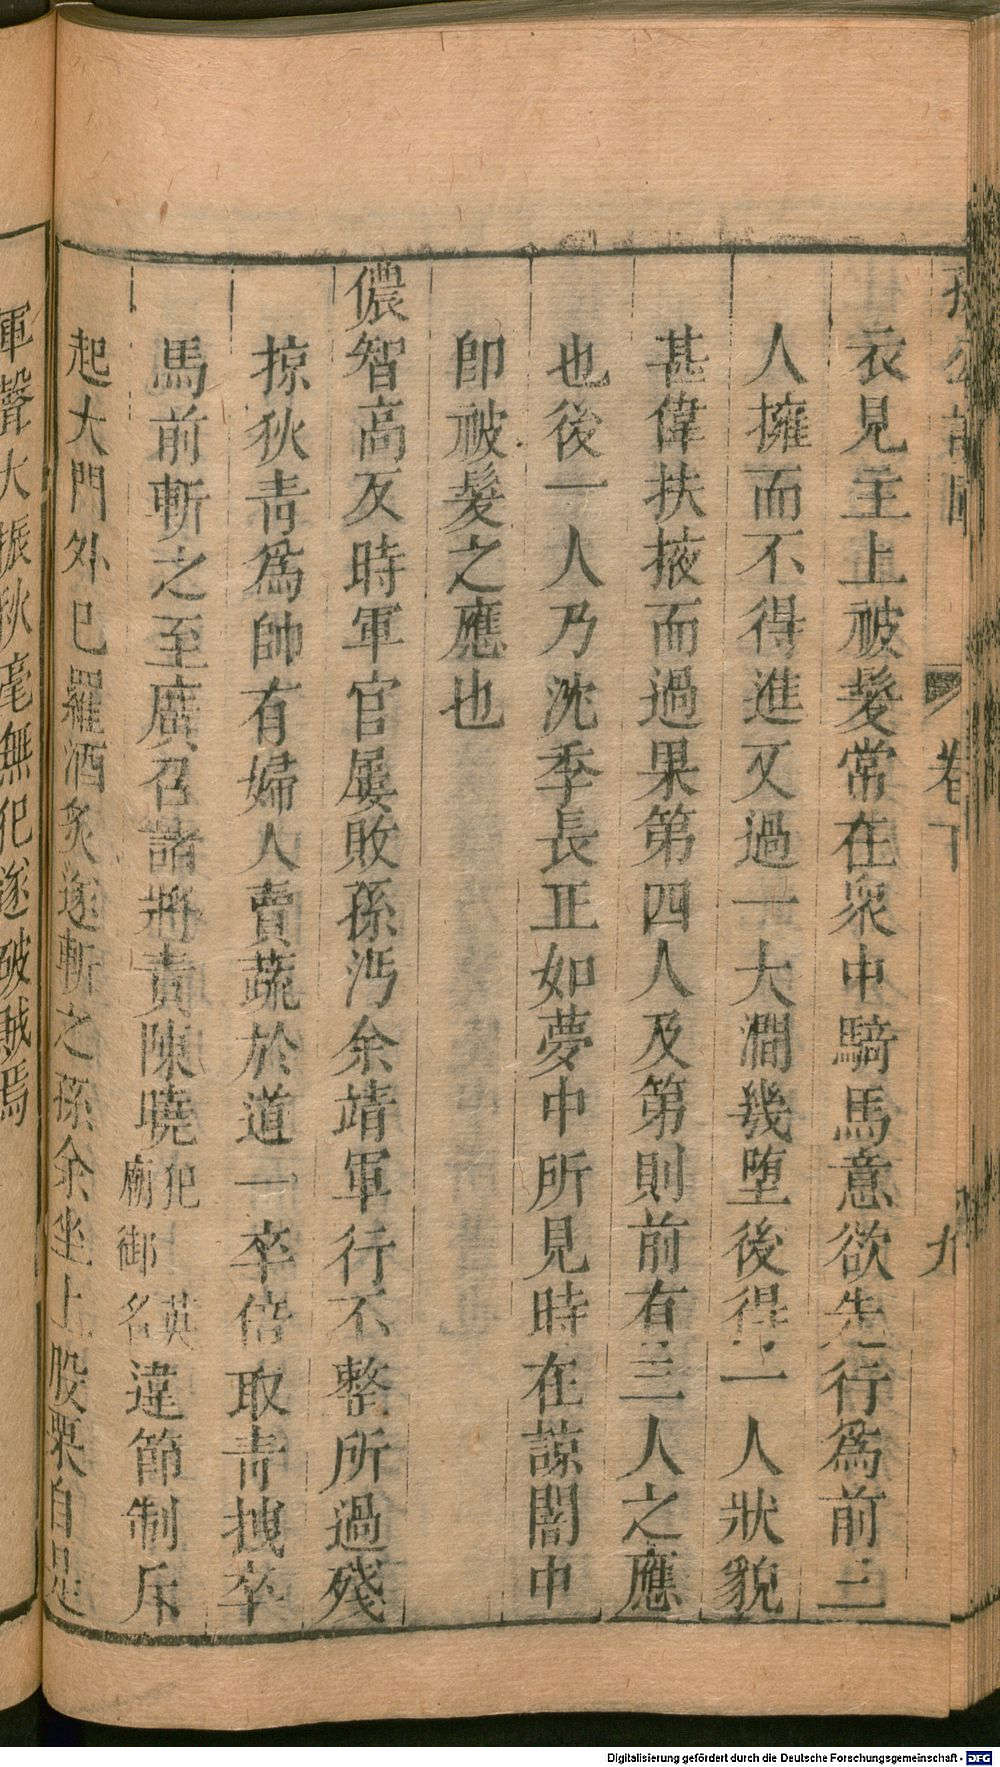 卷下
九
衣見主上被髮常在衆中騎馬意欲先行爲前三
人擁而不得進又過一大澗幾墮後得一人狀貌
甚偉扶掖而過果第四人及第則前有三人之應
也後一人乃沈季長正如夢中所見時在諒闇中
卽被髮之應也
儂智高反時軍官屢敗孫沔余靖軍行不整所過殘
掠狄青爲帥有婦人賣蔬於道一卒倍取青拽卒
馬前斬之至廣召諸將責陳曉犯英廟御名違節制斥
起大門外巳羅酒炙遂斬之孫余坐上股栗自是
軍聲大振秋毫無犯遂破賊焉
Digitalisierung gefördert durch die Deutsche Forschungsgemeinschaft - DFG